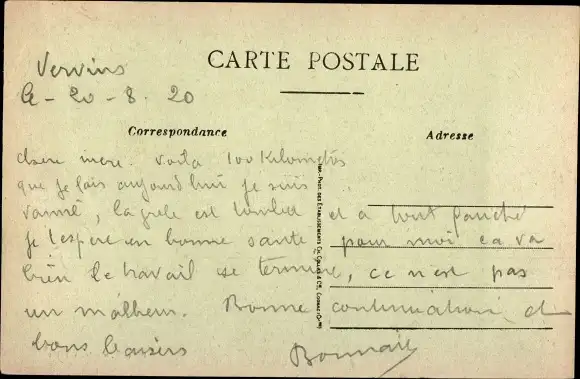 CARTE POSTALE
Vervins
le - 20 - 8. 20
Correspondance
Adresse
chere mere. voila 100 Kilometres
que je fais aujourd'hui je suis
vanné, la grele est tombee et a tout fauché
je t'espere en bonne sante pour moi ca va
bien le travail se termine, ce n'est pas
un malheur. Bonne continuation et
bons baisers